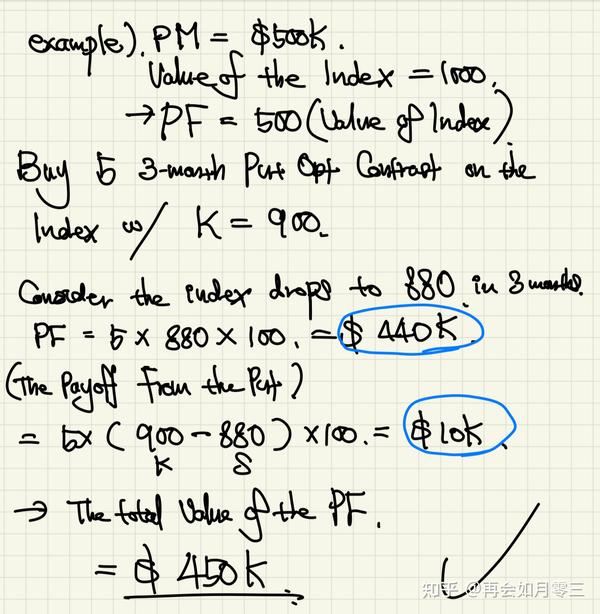 example). PM = $500K.
Value of the Index = 1000.
→ PF = 500 (Value of Index)
Buy 5 3-month Put Opt Contract on the
Index w/ K = 900.
Consider the index drops to 880. in 3 months.
PF = 5 × 880 × 100. = $ 440K.
(The Payoff from the Put)
= 5× ( 900 - 880 ) ×100. = $10K.
K S
→ The total Value of the PF.
= $ 450K.
知乎 @再会如月零三